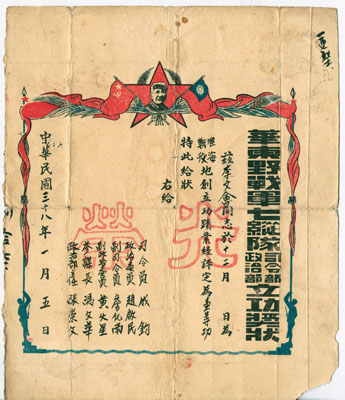 華東野戰軍七縱隊司令部政治部立功獎狀
茲李文會同志於十二月 日為
淮海戰役地創立功蹟業經評定為叁等功
特此給狀
右給
司令員 成鈞
政治委員 趙啟民
副司令員 詹化雨
副政治委員 黃火星
參謀長 馮文華
政治部主任 張崇文
中華民國三十八年一月五日
光
榮